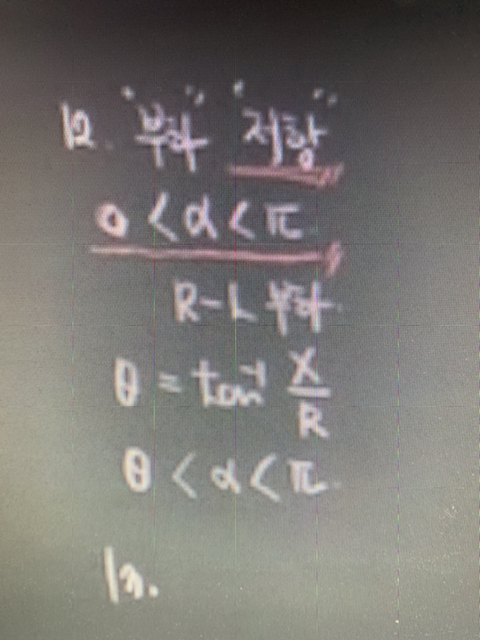 12. "부하" "저항"
0 < α < π
R-L 부하
θ = tan⁻¹ X/R
θ < α < π
13.